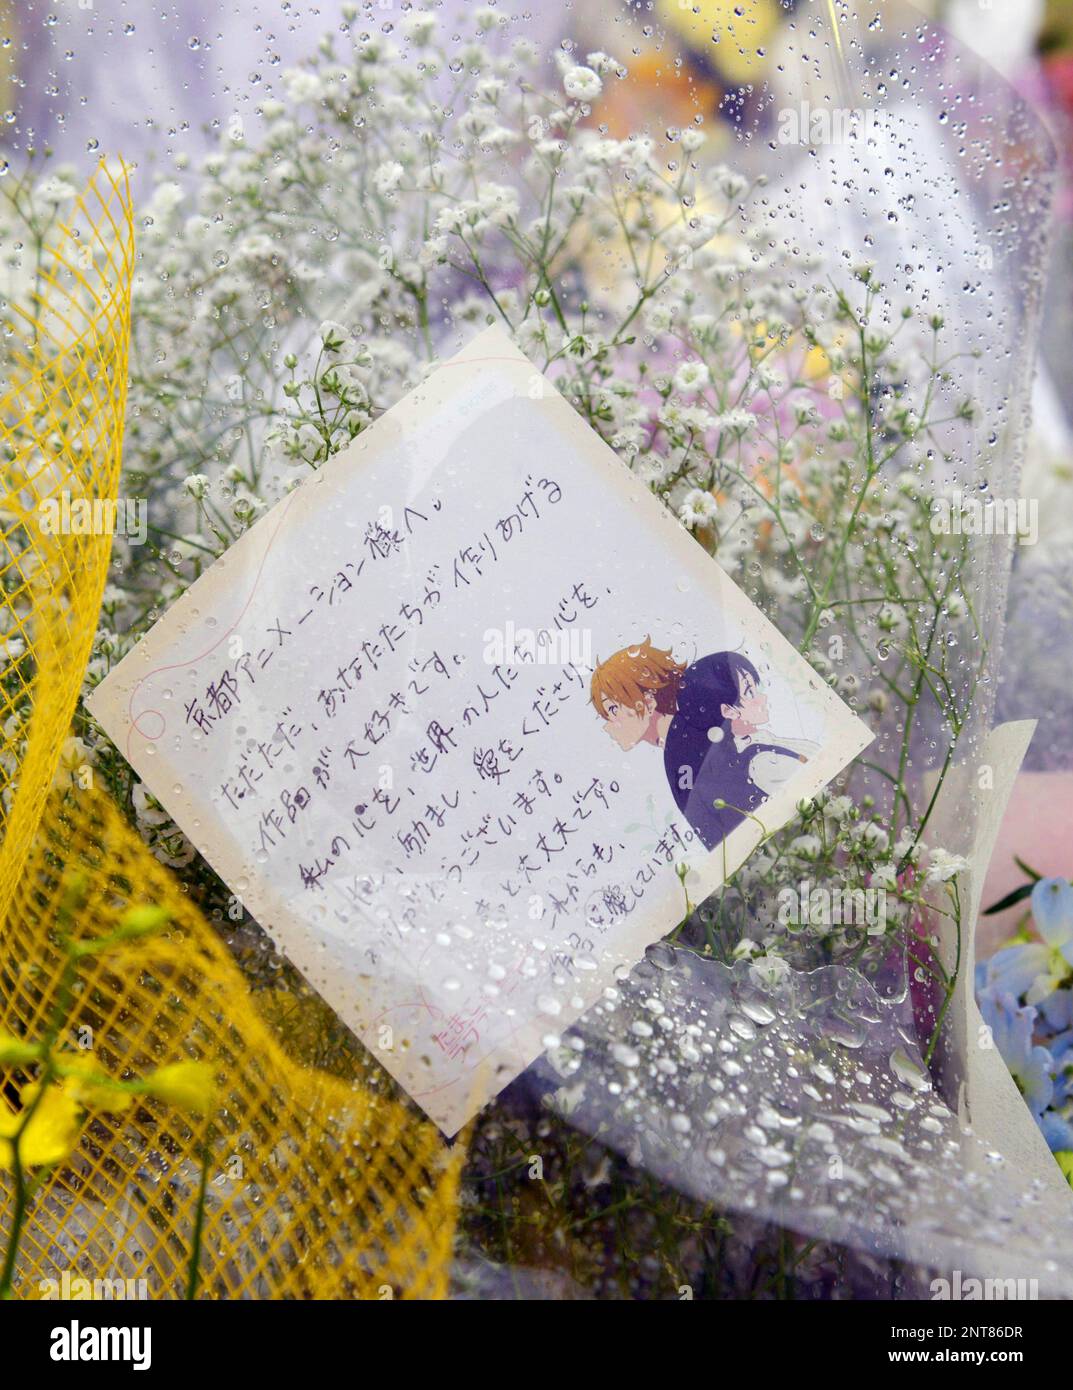 京都アニメーション様へ。
ただただ、あなたたちが作りあげる
作品が大好きです。
私の心を、世界の人たちの心を、
励まし、愛をくださり
ありがとうございます。
きっと大丈夫です。
これからも、
愛しています。
たまこ
alamy
Image ID: 2NT86DR
www.alamy.com